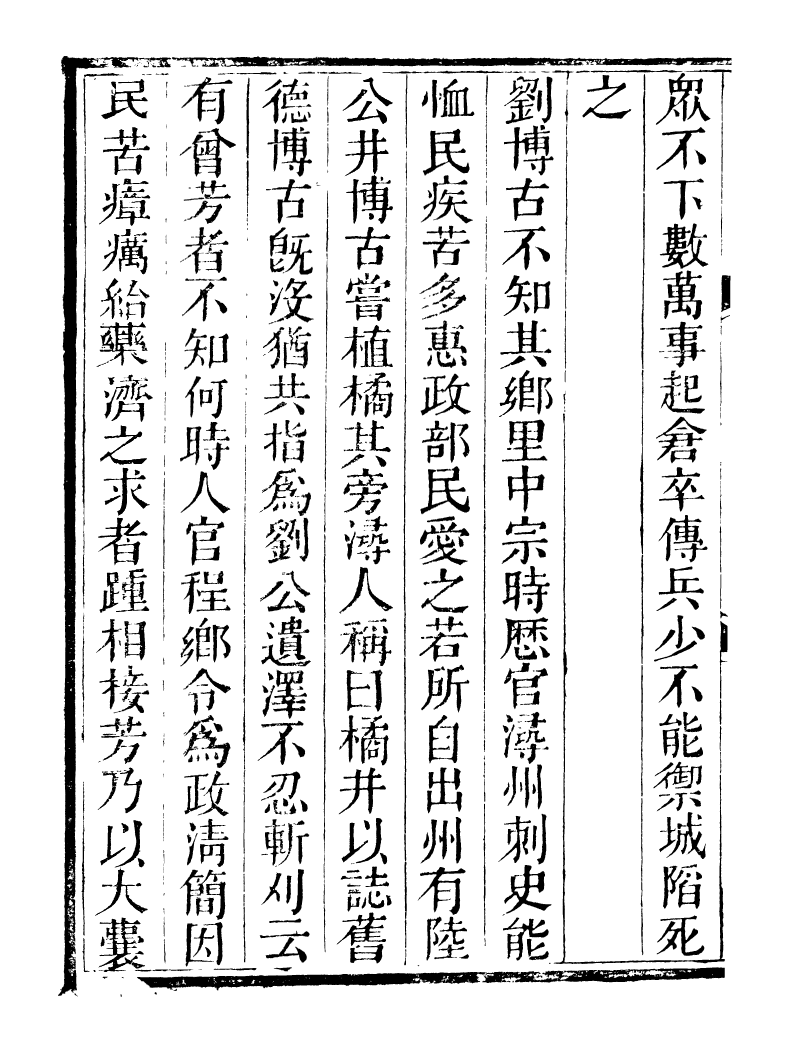 眾不下數萬事起倉卒傳兵少不能禦城陷死
之
劉博古不知其鄉里中宗時歷官潯州刺史能
恤民疾苦多惠政部民愛之若所自出州有陸
公井博古嘗植橘其旁潯人稱曰橘井以誌舊
德博古旣沒猶共指爲劉公遺澤不忍斬刈云
有曾芳者不知何時人官程鄉令爲政淸簡因
民苦瘴癘給藥濟之求者踵相接芳乃以大囊